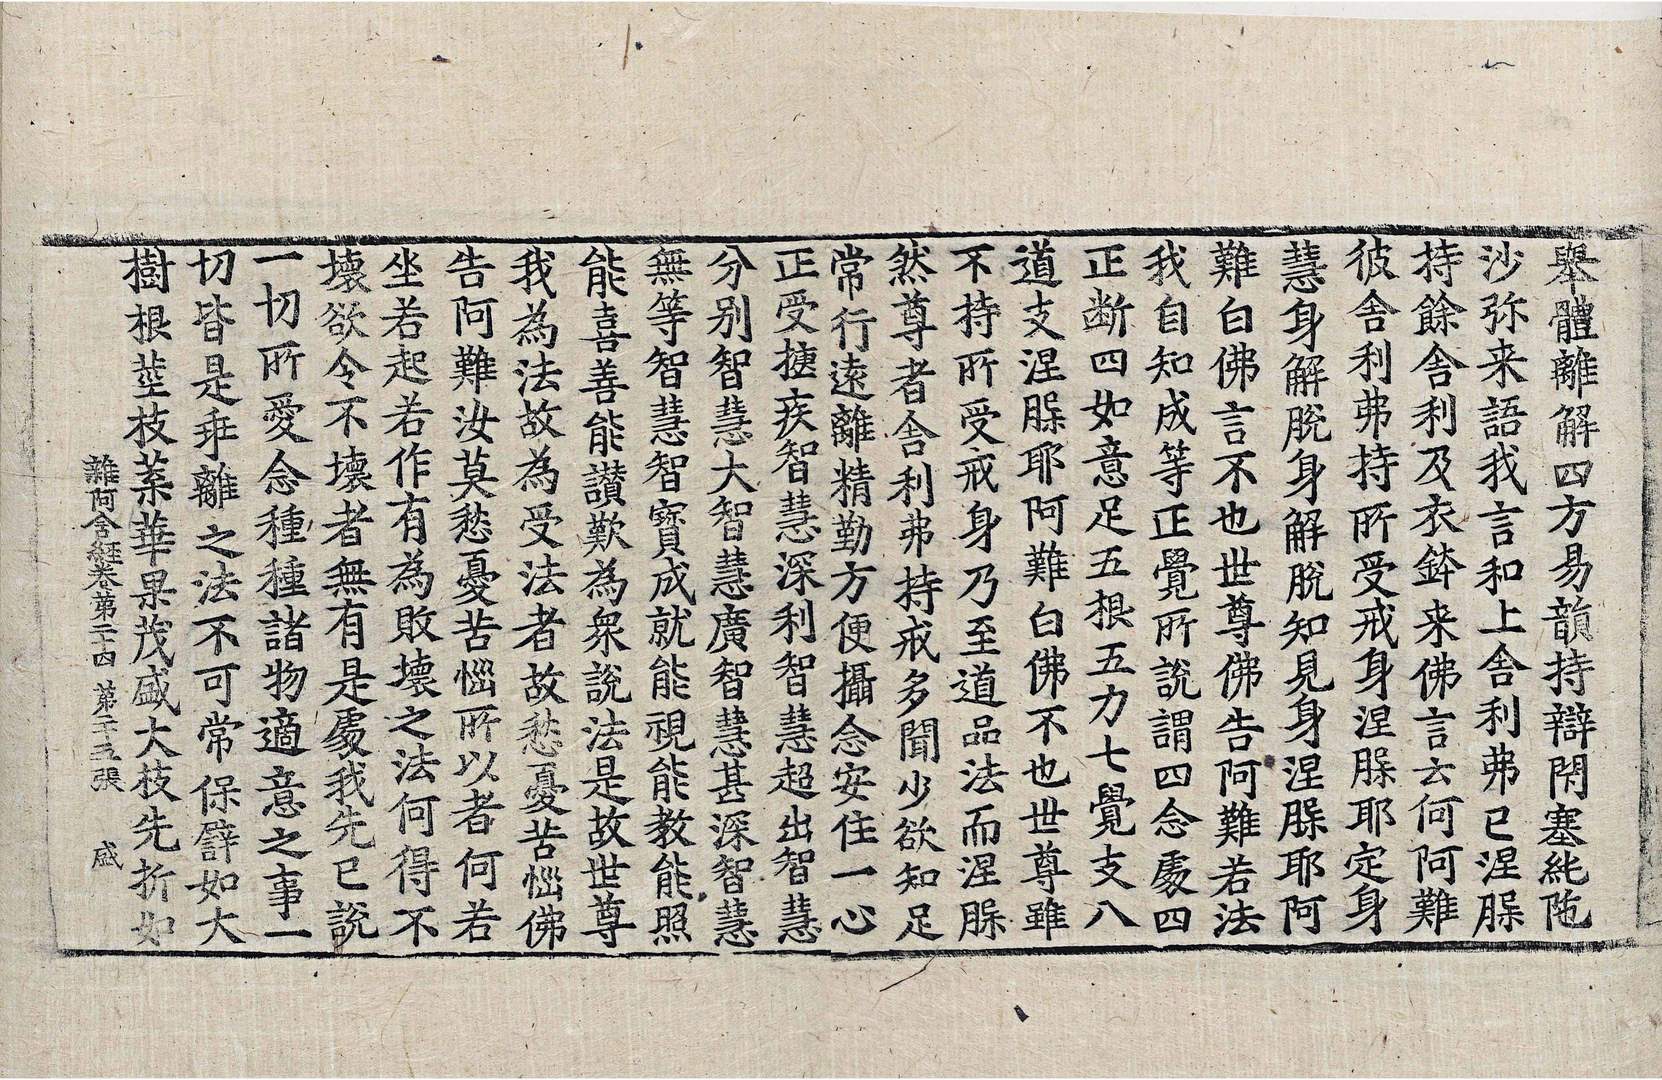 舉體離解四方易韻持辯閇塞純陁
沙弥来語我言和上舍利弗已涅槃
持餘舍利及衣鉢来佛言云何阿難
彼舍利弗持所受戒身涅槃耶定身
慧身解脫身解脫知見身涅槃耶阿
難白佛言不也世尊佛告阿難若法
我自知成等正覺所說謂四念處四
正断四如意足五根五力七覺支八
道支涅槃耶阿難白佛不也世尊雖
不持所受戒身乃至道品法而涅槃
然尊者舍利弗持戒多聞少欲知足
常行遠離精勤方便攝念安住一心
正受捷疾智慧深利智慧超出智慧
分別智慧大智慧廣智慧甚深智慧
無等智慧智寳成就能視能教能照
能喜善能讃歎為衆說法是故世尊
我為法故為受法者故愁憂苦惱佛
告阿難汝莫愁憂苦惱所以者何若
坐若起若作有為敗壞之法何得不
壞欲令不壞者無有是處我先已說
一切所愛念種種諸物適意之事一
切皆是乖離之法不可常保譬如大
樹根莖枝葉華果茂盛大枝先折如
雜阿含經卷第二十四 第二十五張 盛